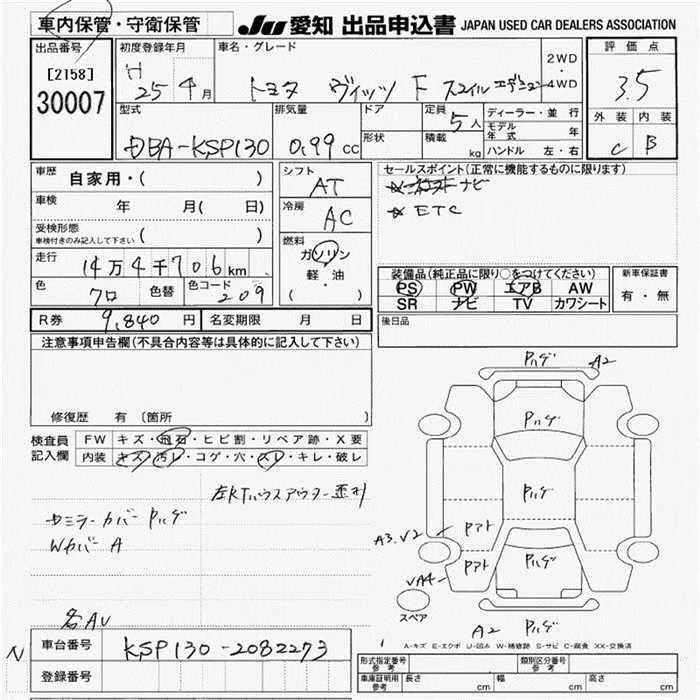 車内保管・守衛保管
JU 愛知 出品申込書 JAPAN USED CAR DEALERS ASSOCIATION
出品番号
[2158]
30007
初度登録年月
H 25年 4月
車名・グレード
トヨタ ヴィッツ F スマイルエデション
2WD
・
4WD
評価点
3.5
外装 内装
C B
型式
DBA-KSP130
排気量
0.99 cc
ドア
形状
定員
5人
積載
kg
ディーラー・並行
モデル年式 年
ハンドル 左・右
車歴
自家用・( )
車検
年 月( 日)
受検形態
車検付きのみ記入して下さい ( )
走行
14万4千706km
色
クロ
色替
色コード
209
シフト
AT
冷房
AC
燃料
ガソリン
軽・油
( ・ )
セールスポイント(正常に機能するものに限ります)
ナビ
☆ ETC
装備品(純正品に限り○をつけてください)
PS PW エアB AW
SR ナビ TV カワシート
新車保証書
有・無
後日品
R券 9,840 円 名変期限 月 日
注意事項申告欄(不具合内容等は具体的に記入して下さい)
修復歴 有 〔箇所 〕
検査員
記入欄
FW キズ・飛石・ヒビ割・リペア跡・X要
内装 キズ・汚レ・コゲ・穴・スレ・キレ・破レ
左Rタイハウスアウター歪判
Wカバー A
各AU
N
車台番号 KSP130-2082273
登録番号
ハゲ A2
ハゲ
ハゲ
ハゲ
A3.V2
アト
アト
VA4
スペア
A2 ハゲ
A-キズ E-エクボ U-凹み W-補修跡 S-サビ C-腐食 XX-交換済
形式指定番号
参考
類別区分番号
参考
車庫証明用
参考
長さ cm 幅 cm 高さ cm